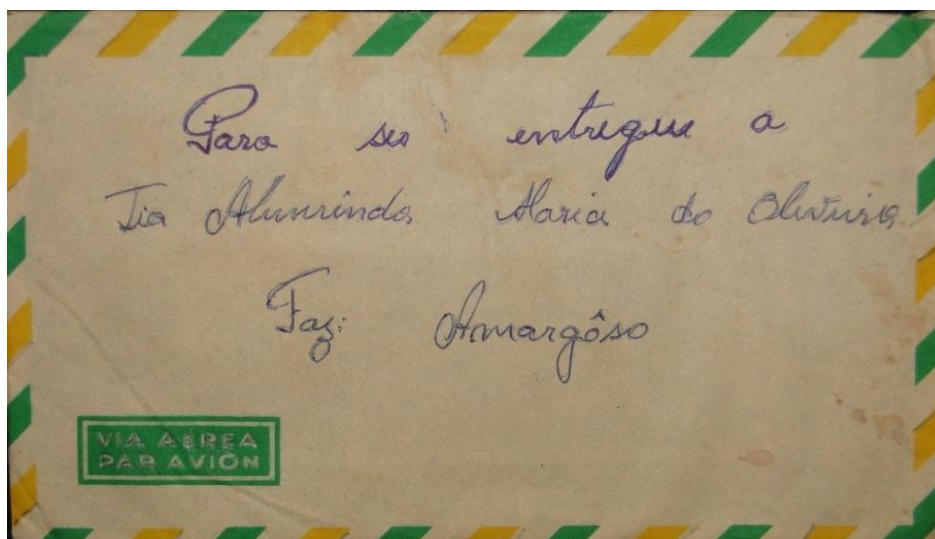 Para ser entregue a
Tia Almerinda Maria de Oliveira
Faz: Amargôso
VIA AÉREA
PAR AVIÓN